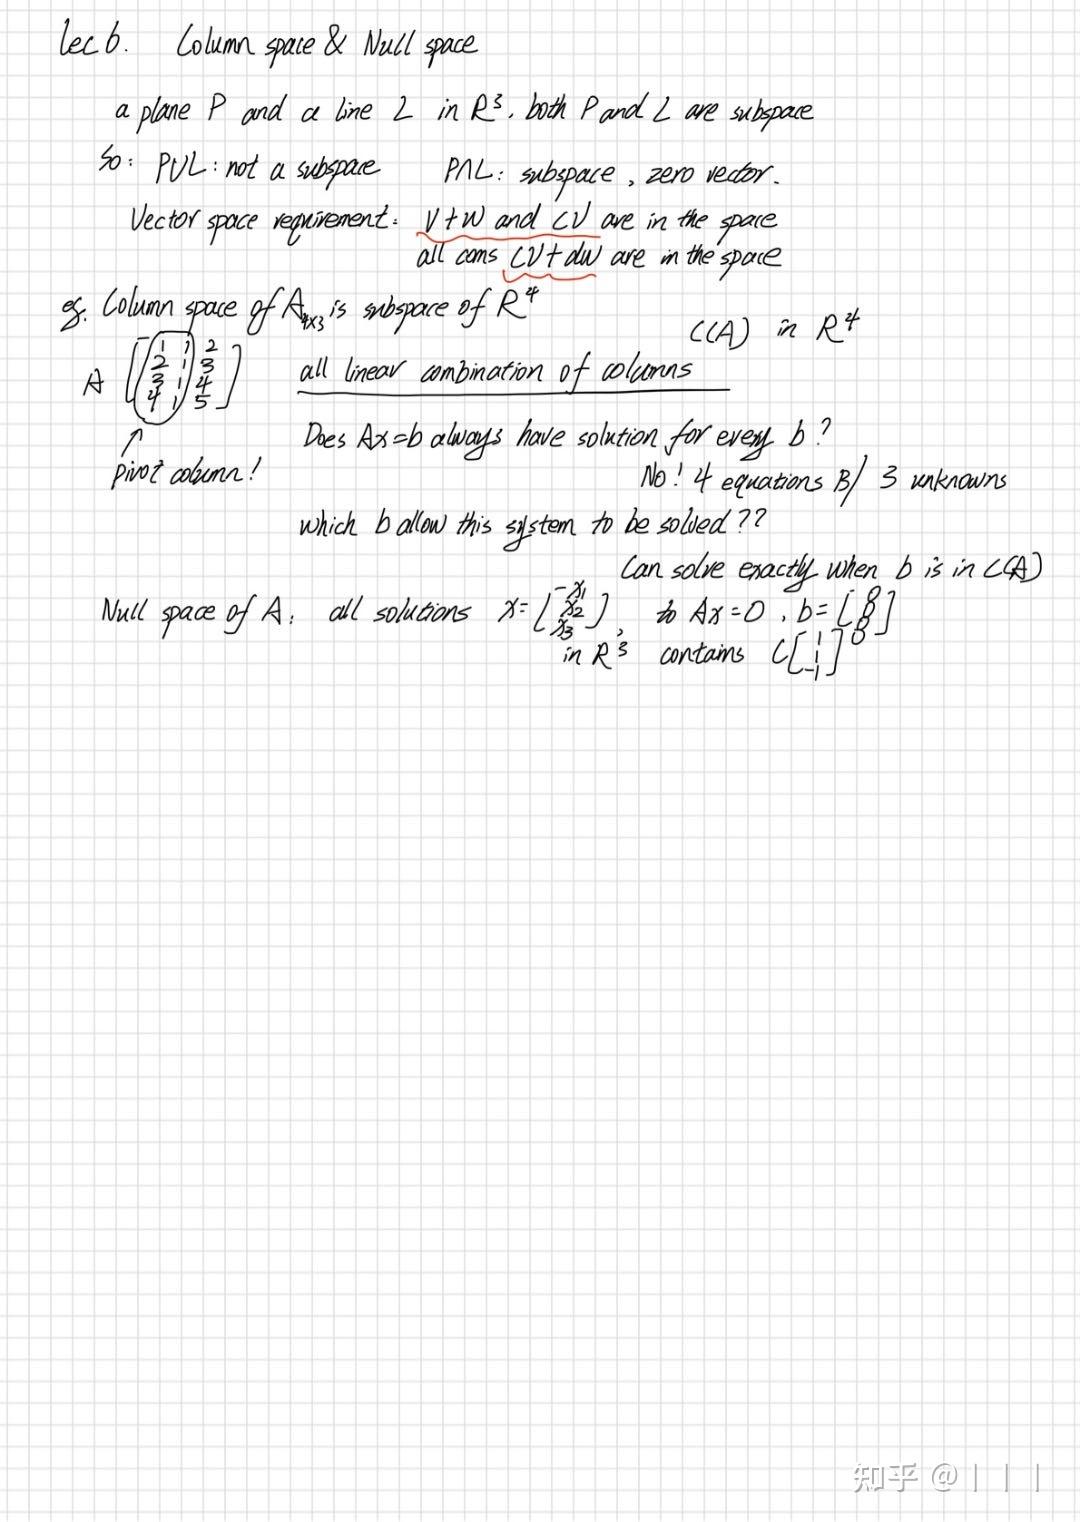 Lec 6. Column space & Null space
a plane P and a line L in R³. both P and L are subspace
So: PUL: not a subspace P∩L: subspace, zero vector.
Vector space requirement: V+W and CV are in the space
all coms CV+dw are in the space
eg. Column space of A₄ₓ₃ is subspace of R⁴
C(A) in R⁴
A [1 1 2
2 1 3
3 1 4
4 1 5]
all linear combination of columns
pivot column!
Does Ax=b always have solution for every b?
No! 4 equations B/ 3 unknowns
which b allow this system to be solved??
Can solve exactly when b is in C(A)
Null space of A: all solutions x=[x₁ x₂ x₃], to Ax=0, b=[0 0 0]
in R³ contains C[1 1 -1]
知乎 @丨丨丨